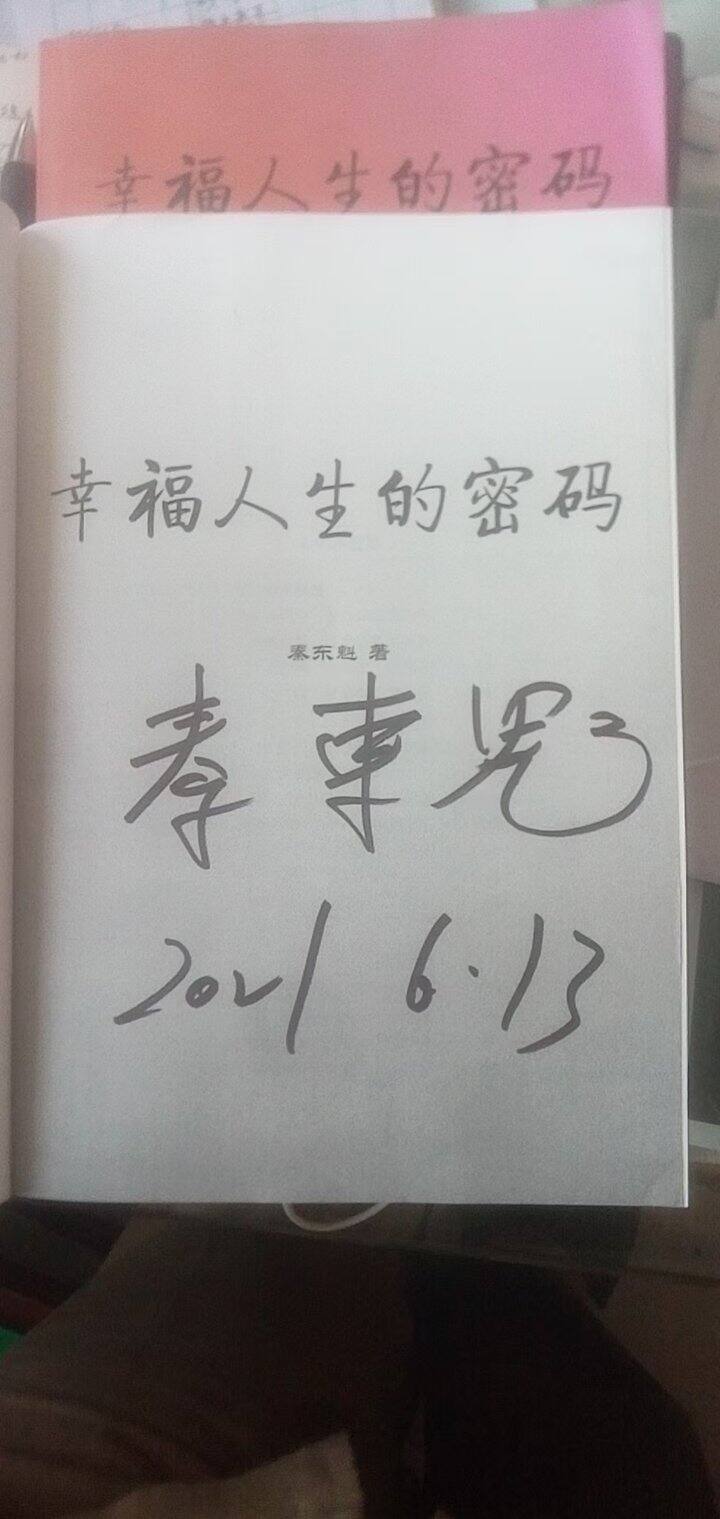 幸福人生的密码
幸福人生的密码
秦东魁 著
秦東魁
2021 6.13